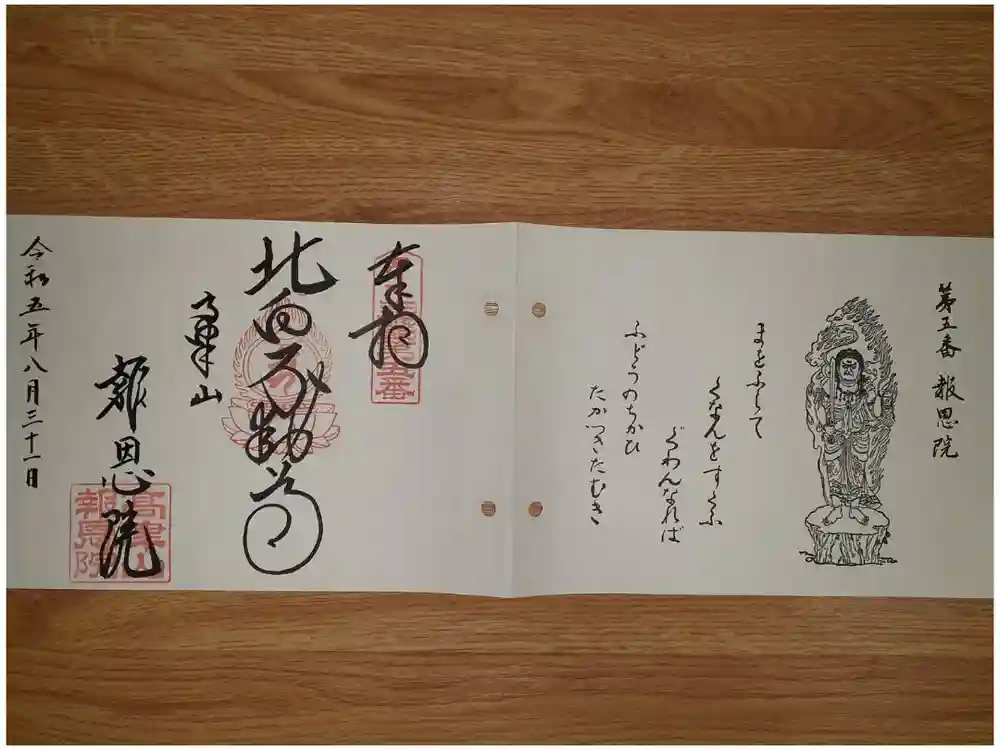 第五番 報恩院
まをふして
くなんをすくふ
ぐわんなれば
ふどうのちかひ
たかつきたむき
奉拝
五番
北向不動尊
高津山
報恩院
高津山
報恩院
令和五年八月三十一日